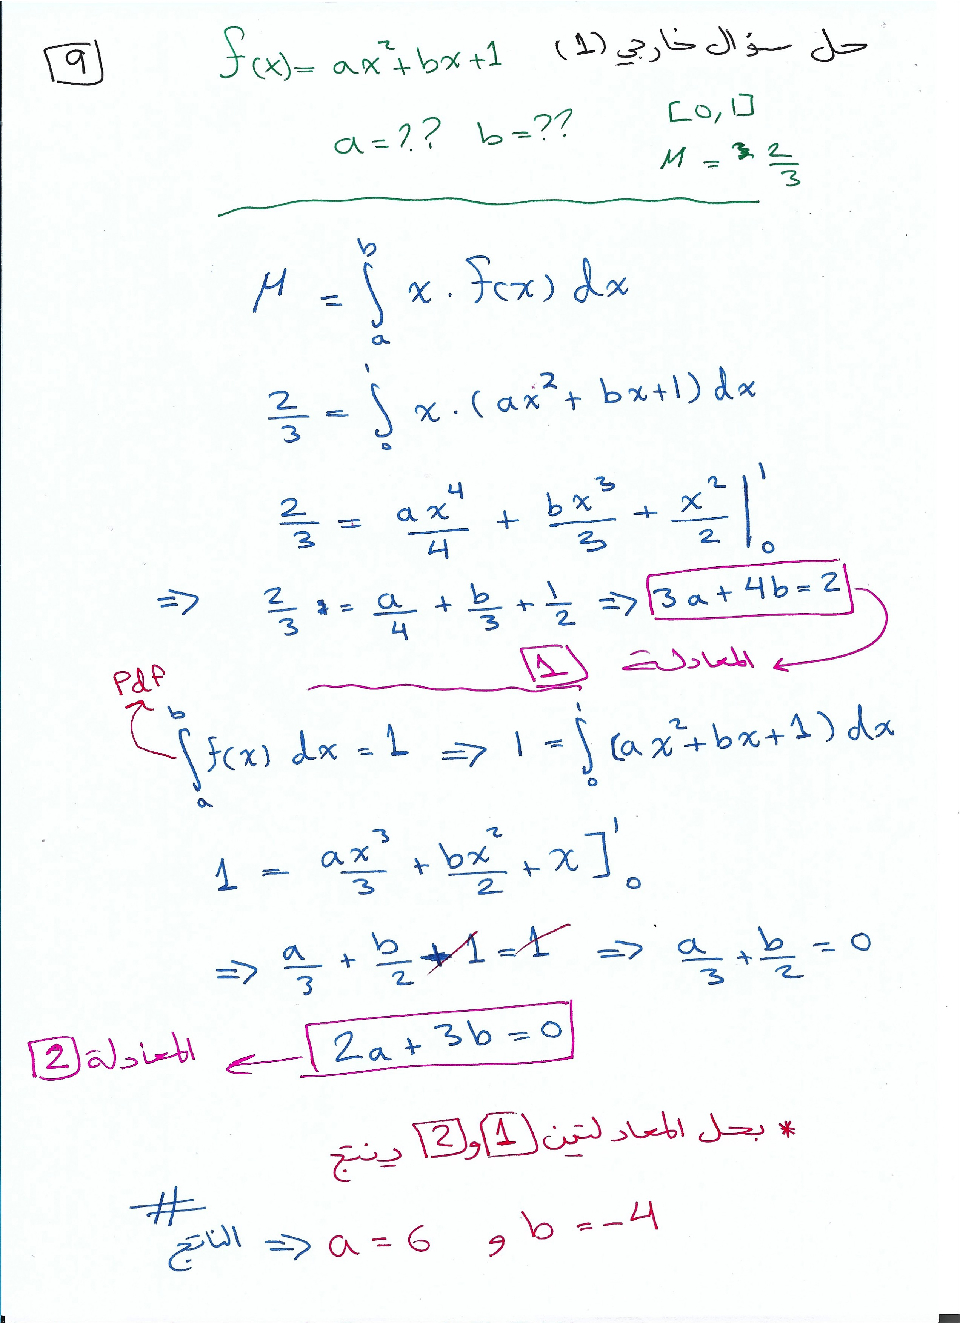 9
حل سؤال خارجي (1)
f(x) = ax² + bx + 1
a = ?? b = ?? [0, 1]
M = 2/3
M = ∫ₐᵇ x . f(x) dx
2/3 = ∫₀¹ x . (ax² + bx + 1) dx
2/3 = ax⁴/4 + bx³/3 + x²/2 |₀¹
=> 2/3 = a/4 + b/3 + 1/2 => 3a + 4b = 2
المعادلة 1
Pdf
∫ₐᵇ f(x) dx = 1 => 1 = ∫₀¹ (ax² + bx + 1) dx
1 = ax³/3 + bx²/2 + x ]₀¹
=> a/3 + b/2 + 1 = 1 => a/3 + b/2 = 0
2a + 3b = 0 ← المعادلة 2
* بحل المعادلتين 1 و 2 ينتج
#
الناتج => a = 6 و b = -4